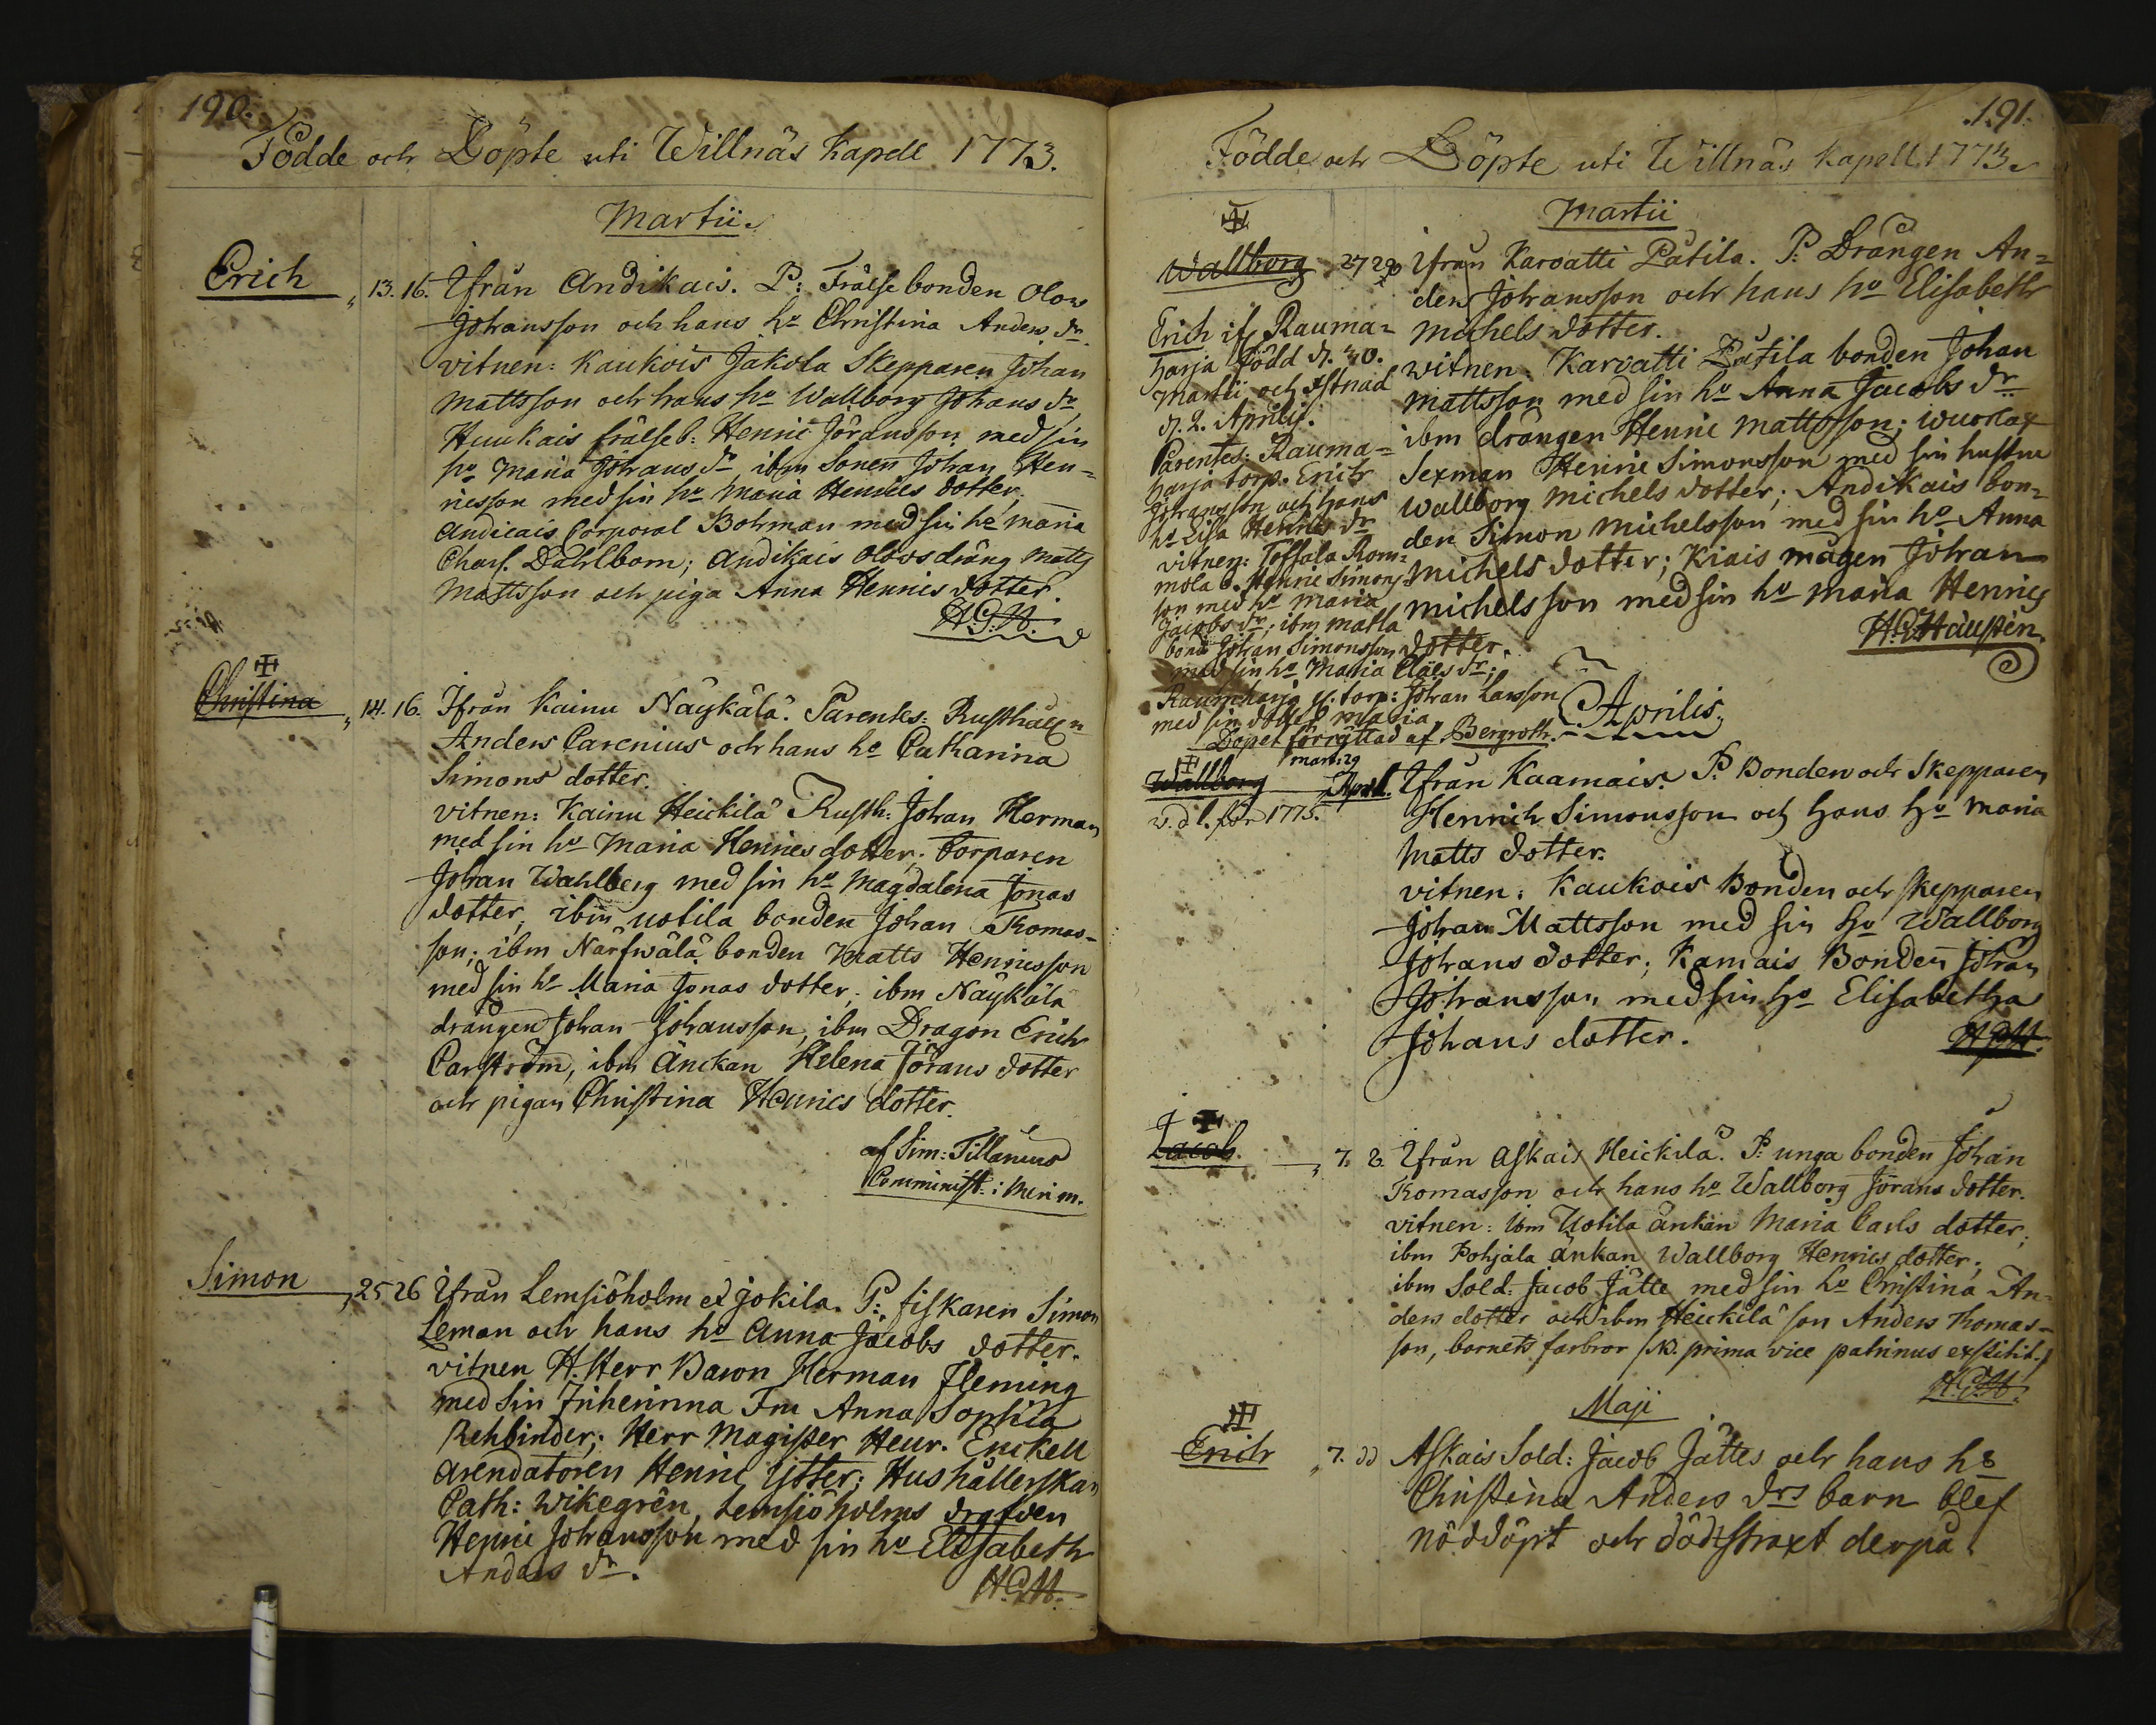 190.
Födde och Döpte uti Willnäs Kapell 1773.
Martii.
Erich
13. 16. Ifrån Andikais. P: Frälse bonden Olow
Johansson och hans ho Christina Anders dr.
vitnen: Kaukois Jakola Skepparen Johan
Mattsson och hans ho Wallborg Johans dr,
Huukais frälseb: Henric Jöransson med sin
ho Maria Johans dr ibm Sonen Johan Hen=
ricsson med sin ho Maria Henrics dotter,
Andicais Corporal Bohman med sin ho Maria
Charl. Dahlbom; Andikais Olovs dräng Matts
Mattsson och piga Anna Henrics dotter.
H.G.H.
Christina
14. 16. Ifrån Kainu Näykälä. Parentes: Rusthåll:n
Anders Carenius och hans ho Catharina
Simons dotter.
vitnen: Kainu Heickilä Rusth: Johan Herman
med sin ho Maria Henrics dotter; Torparen
Johan Wahlberg med sin ho Magdalena Jonas
dotter, ibm Uotila bonden Johan Thomas-
son; ibm Närfwälä bonden Matts Henricsson
med sin ho Maria Jonas dotter; ibm Näykälä
drängen Johan Johansson, ibm Dragon Erich
Carlström, ibm änckan Helena Jörans dotter
och pigan Christina Henrics dotter.
af Sim: Tillænius
Comminist: i Merim.
Simon
25 26 Ifrån Lemsiöholm et Jokila. P: fiskaren Simon
Leman och hans ho Anna Jacobs dotter.
vitnen H. Herr Baron Herman Fleming
med sin Friherinna Fru Anna Sophia
Rehbinder; Herr Magister Henr. Enckell
arendatoren Henric Ytter; Hushållerskan
Cath: Wikegrén, Lemsiöholms
Henric Johansson med sin ho Elisabeth
Anders dr.
H.G.H.
191.
Födde och Döpte uti Willnäs Kapell 1773.
Martii
Wallborg 27 29 Ifrån Karvatti Pätila. P: Drängen An=
ders Johansson och hans ho Elisabeth
Michels dotter.
vitnen. Karvatti Pätila bonden Johan
Mattsson med sin ho Anna Jacobs dr
ibm drängen Henric Mattsson;
Sexman Henric Simonsson med sin hustru
Wallborg Michels dotter; Andikais bon=
den Simon Michelsson med sin ho Anna
Michels dotter; Kiais mågen Johan
Michelsson med sin ho Maria Henrics
dotter.
H.G. Haustén
Erich if. Rauma=
harja född d. 30.
Martii och Xstnad
d. 2. Aprilis.
Parentes: Rauma=
harja torp. Erich
Johansson och hans
ho Lisa Henrics dr
vitnen: Tossala Rom=
mola b. Henric Simons
son med ho Maria
Jacobs dr, ibm Matla
bond Johan Simonsson
med sin ho Maria Claes dr;
Raumharja torp: Johan Larsson
med sin dotter Maria
Dopet förrättad af Bergroth.
Aprilis.
Mart: 29
Wallborg
April. Ifrån Kaamais. P. Bonden och Skepparen
v. d l. för 1775.
Henrich Simonsson och hans ho Maria
Matts dotter.
vitnen: Kaukois Bonden och skepparen
Johan Mattsson med sin ho Wallborg
Johans dotter; Kamais Bonden Johan
Johansson med sin ho Elisabetha
Johans dotter.
H.G.H.
Jacob.
7. 8. Ifrån Askais Heickilä. P: unga bonden Johan
Thomasson och hans ho Wallborg Jörans dotter.
vitnen: ibm Uotila änkan Maria Carls dotter;
ibm Pohjala änkan Wallborg Henrics dotter;
ibm Sold: Jacob Jätte med sin ho Christina An-
ders dotter och ibm Heickilä son Anders Thomas-
son, barnets farbror /NB. prima vice patrinus exstitit./
H.G.H.
Maji
Erich
7. dd Askais Sold: Jacob Jättes och hans ho
Christina Anders drs barn blef
nöddöpt och död strax derpå.